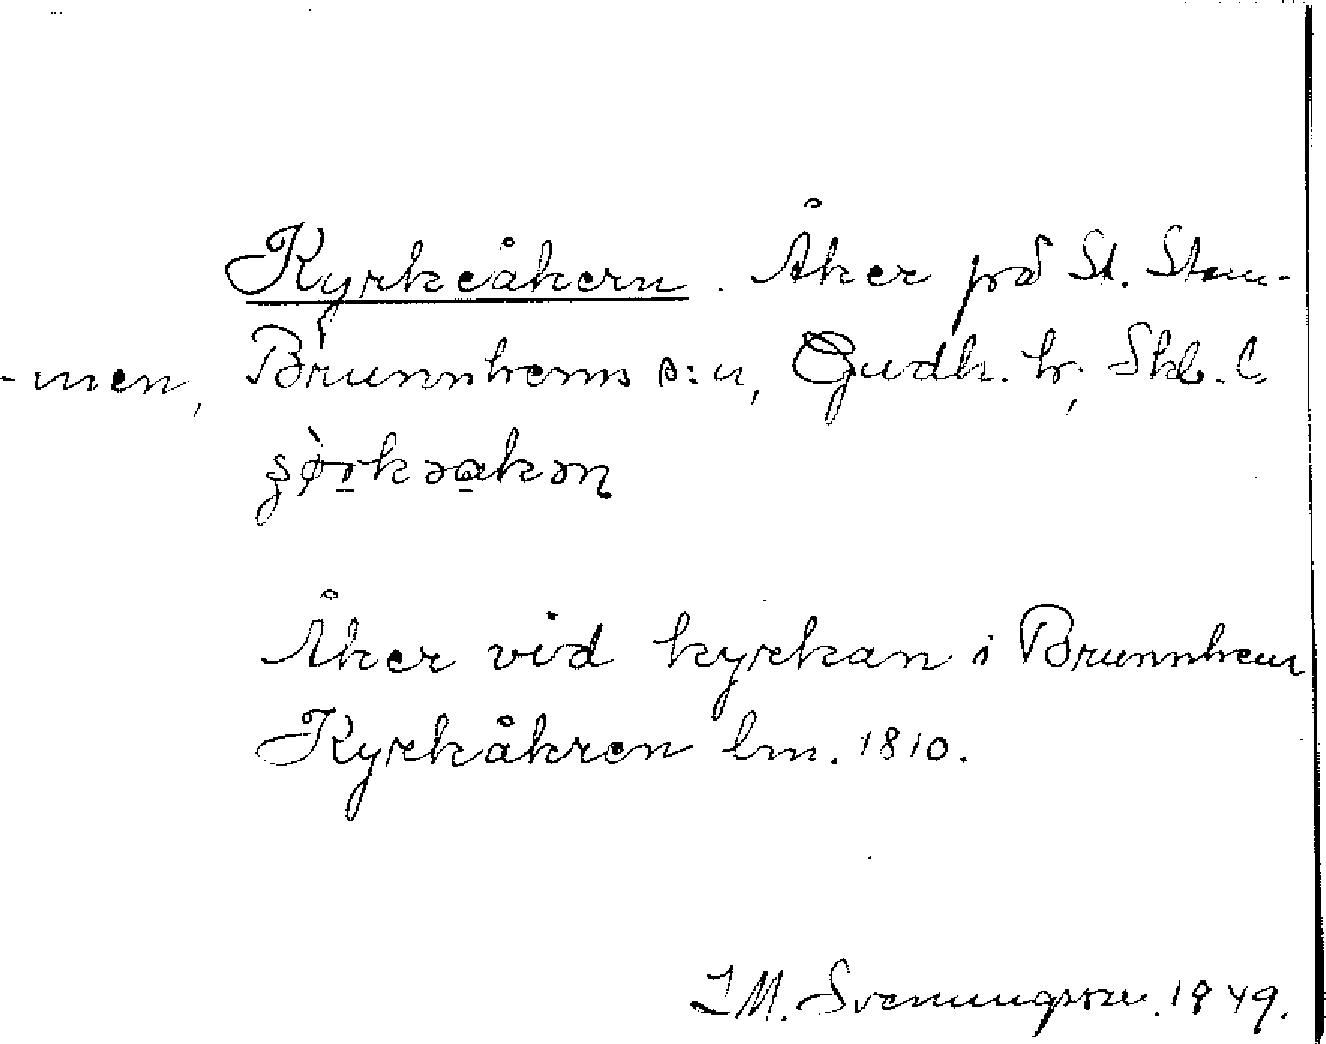 Kyrkeåkern. Åker på St. Stom-
-men, Brunnhems s:n, Gudh. hr, Skb. l.
Åker vid kyrkan i Brunnhem
Kyrkåkren lm. 1810.
I M. Svenungsson. 1949.